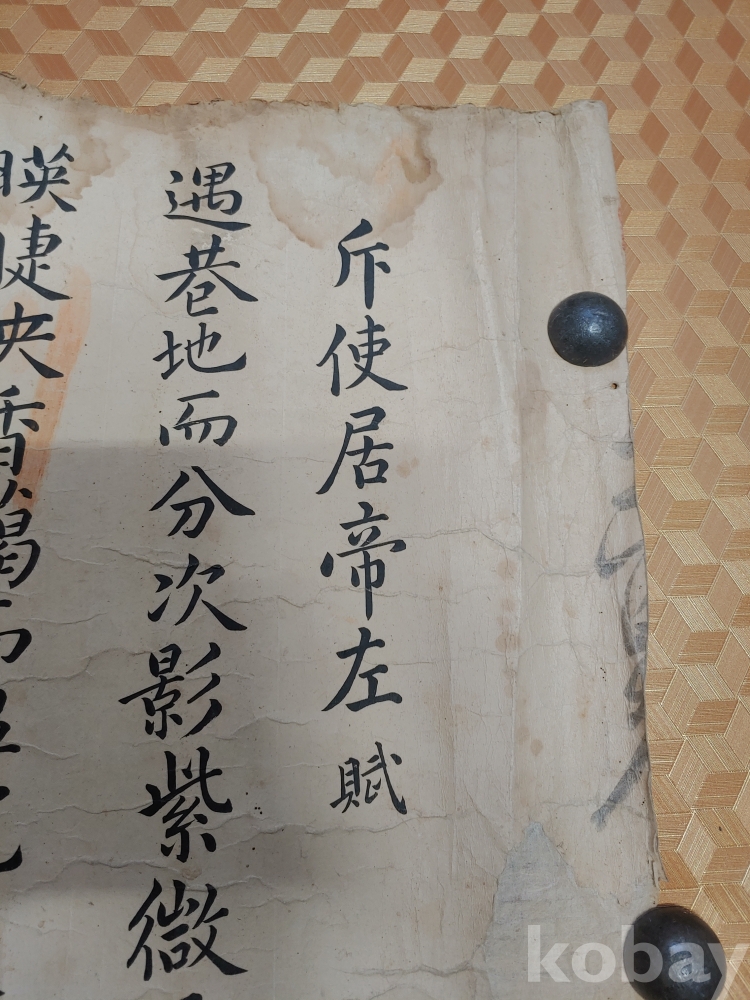 斥使居帝左 賦
遇巷地而分次影紫微
暎睫央香
kobay